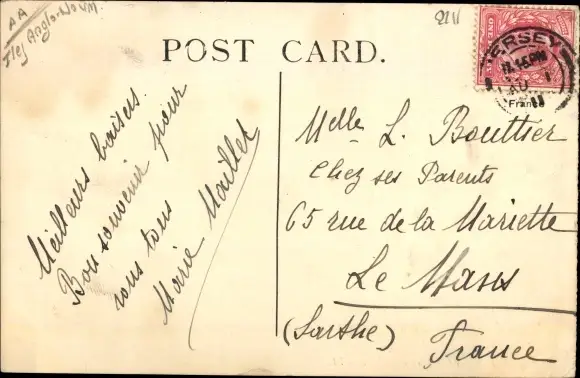 AA
Iles Anglo-Norm.
POST CARD.
JERSEY
France
Meilleurs baisers.
Bon souvenir pour
vous tous
Marie Maillet
Melle L. Bouttier
Chez ses Parents
65 rue de la Mariette
Le Mans
(Sarthe)
France